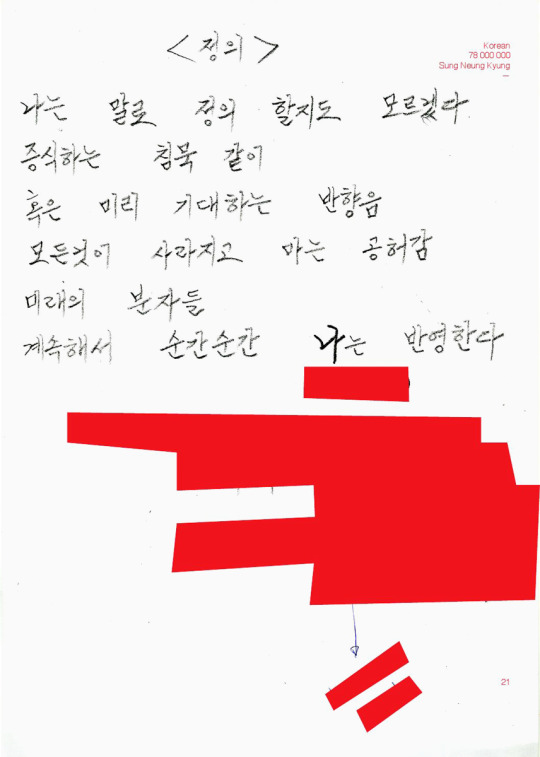 <정의>
Korean
78 000 000
Sung Neung Kyung
—
나는 말로 정의 할지도 모르겠다
증식하는 침묵 같이
혹은 미리 기대하는 반향음
모든것이 사라지고 마는 공허감
미래의 분자들
계속해서 순간순간 나는 반영한다
21